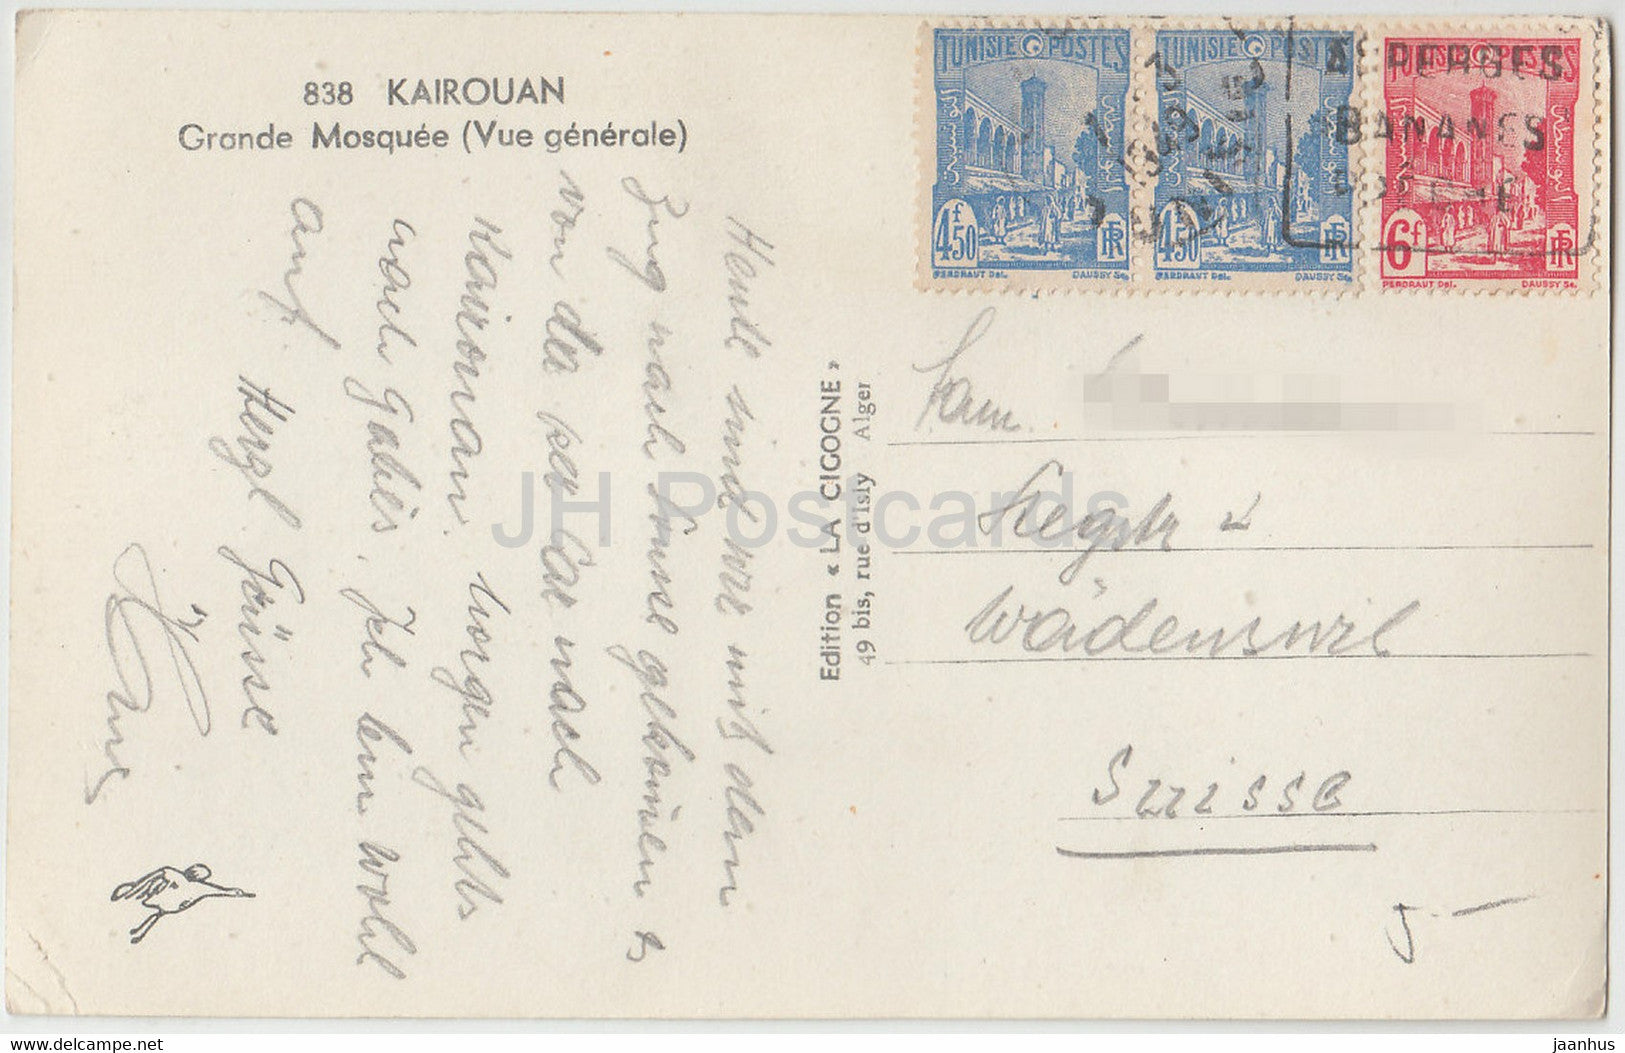 838 KAIROUAN
Grande Mosquée (Vue générale)
Heute sind wir mit dem
Zug nach Sousse gekommen &
von da per Car nach
Kairouan. Morgen gehts
nach Gabès. Ich bin wohl
auf. Herzl. Grüsse
Edition « LA CIGOGNE »
49 bis, rue d'Isly Alger
TUNISIE POSTES
4f50
RF
PERDRAUT Del. DAUSSY Sc.
TUNISIE POSTES
4f50
RF
PERDRAUT Del. DAUSSY Sc.
TUNISIE POSTES
6f
RF
PERDRAUT Del. DAUSSY Sc.
1949
ASPERGES
BANANES
Fam.
Wädenswil
Suisse
JH Postcards
www.delcampe.net
jaanhus